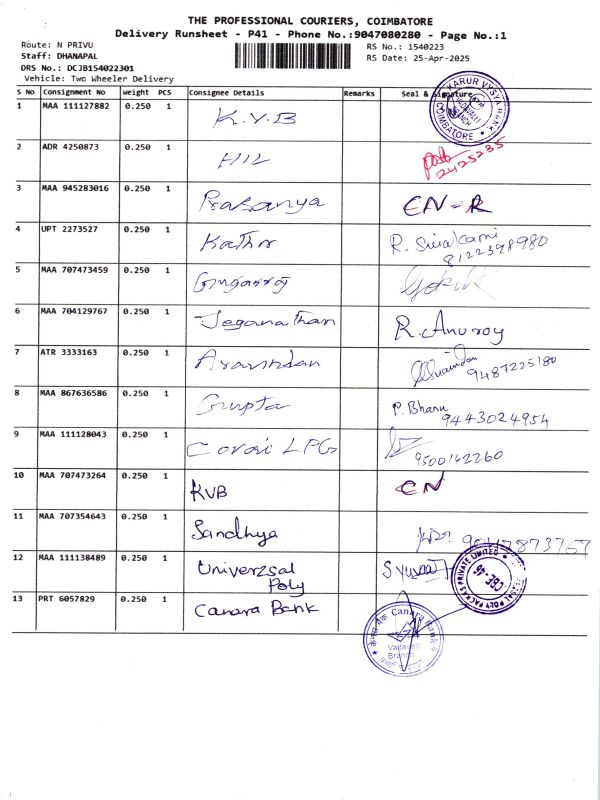 THE PROFESSIONAL COURIERS, COIMBATORE
Delivery Runsheet - P41 - Phone No.:9047080280 - Page No.:1
Route: N PRIVU
RS No.: 1540223
Staff: DHANAPAL
RS Date: 25-Apr-2025
DRS No.: DCJB154022301
Vehicle: Two Wheeler Delivery
S No Consignment No Weight PCS Consignee Details Remarks Seal & Signature
1 MAA 111127882 0.250 1 K.V.B KARUR VYSYA BANK COIMBATORE
2 ADR 4250873 0.250 1 HIL 2425235
3 MAA 945283016 0.250 1 Prasanya CN-R
4 UPT 2273527 0.250 1 Kathir R. Sivakami
8122398980
5 MAA 707473459 0.250 1
6 MAA 704129767 0.250 1 Jeganathan R. Anuroy
7 ATR 3333163 0.250 1 Aravindan 9487225180
8 MAA 867636586 0.250 1 Gupta P. Bhanu
9443024954
9 MAA 111128043 0.250 1 Covai LPG 9500142260
10 MAA 707473264 0.250 1 KVB CN
11 MAA 707354643 0.250 1 Sandhya 9047873767
12 MAA 111138489 0.250 1 Univerzsal
Poly CBE-45 PRIVATE LIMITED
13 PRT 6057829 0.250 1 Canara Bank
केनरा बैंक Canara Bank
Vadavalli
Branch